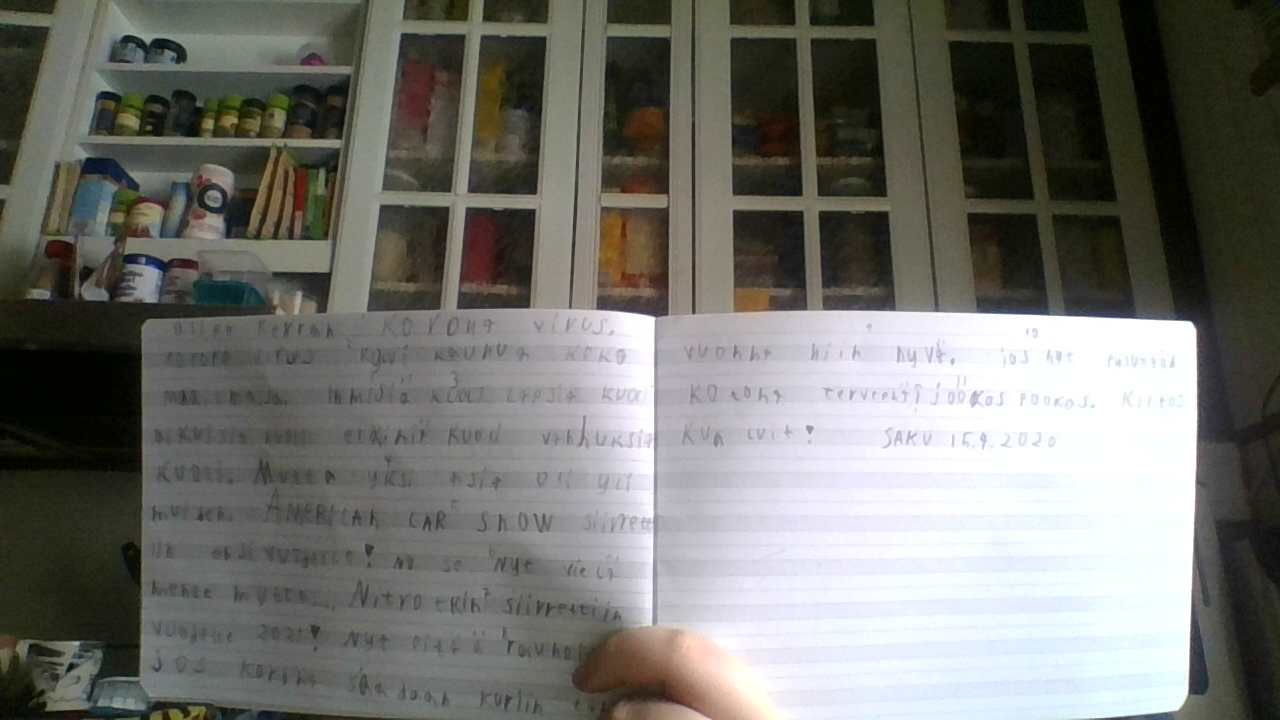 olipa kerran korona virus.
korona virus kylvi kauhua koko
maailmassa. Ihmisiä kuoli Lapsia kuoli
aikuisia kuoli eläimiä kuoli vanhuksia
kuoli. Mutta yksi asia oli yli
muiden. AMERICAN CAR SHOW siirrett
iin ensi vuojelle! no se Nyt vielä
menee mutta... Nitro tkin siirrettiin
vuojelle 2021! Nyt pitää rauho
jos korona saadaan kuriin
vuonna niin hyvä. jos nyt pysytään
kotona terveenä? jöökos pookos. Kiitos
kun luit! SAKU 15.9.2020